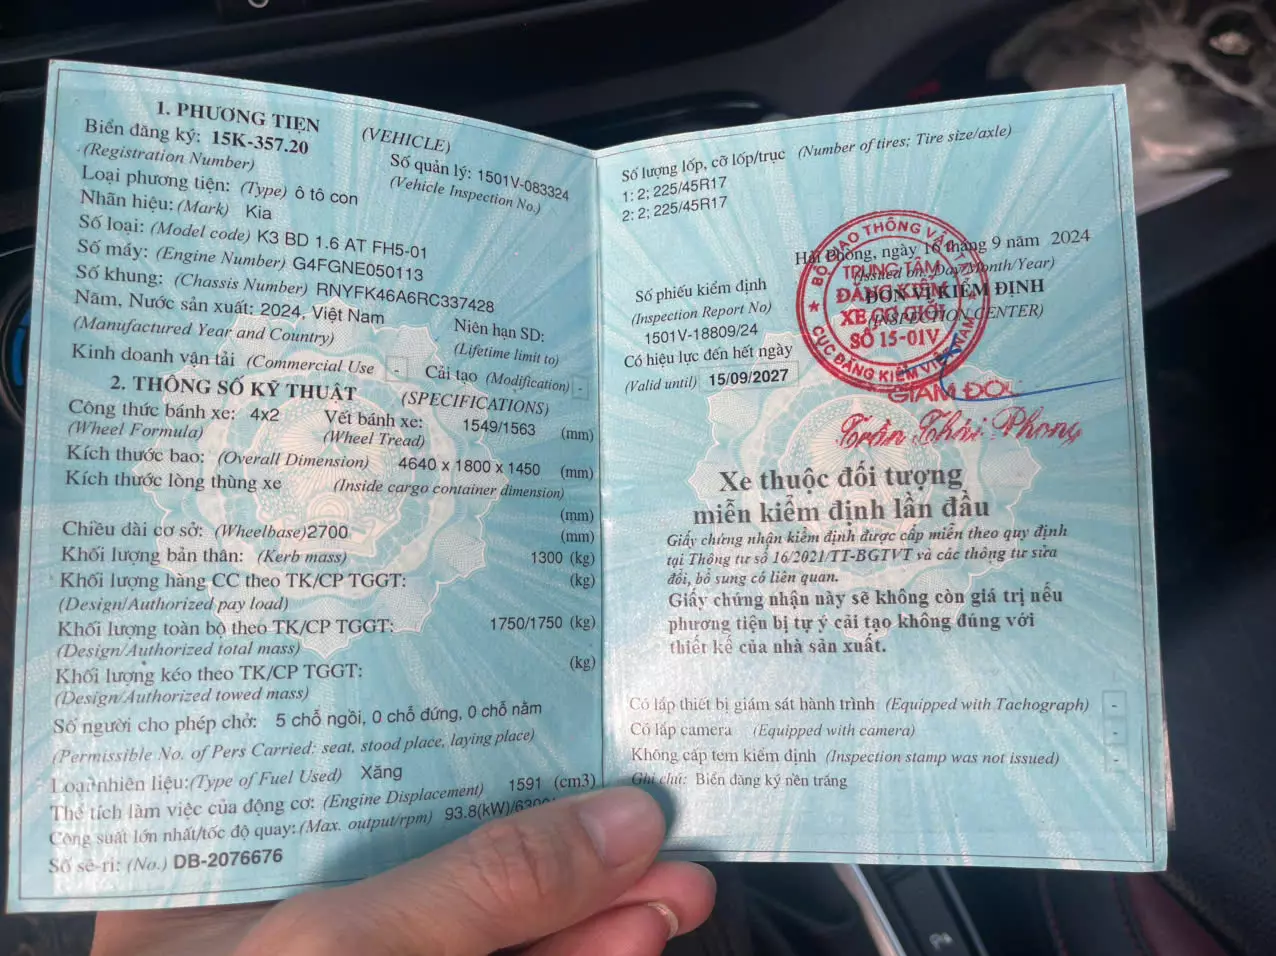 1. PHƯƠNG TIỆN (VEHICLE)
Biển đăng ký: 15K-357.20 Số quản lý: 1501V-083324
(Registration Number) (Vehicle Inspection No.)
Loại phương tiện: (Type) ô tô con
Nhãn hiệu: (Mark) Kia
Số loại: (Model code) K3 BD 1.6 AT FH5-01
Số máy: (Engine Number) G4FGNE050113
Số khung: (Chassis Number) RNYFK46A6RC337428
Năm, Nước sản xuất: 2024, Việt Nam Niên hạn SD:
(Manufactured Year and Country) (Lifetime limit to)
Kinh doanh vận tải (Commercial Use - Cải tạo (Modification) -
2. THÔNG SỐ KỸ THUẬT (SPECIFICATIONS)
Công thức bánh xe: 4x2 Vết bánh xe: 1549/1563 (mm)
(Wheel Formula) (Wheel Tread)
Kích thước bao: (Overall Dimension) 4640 x 1800 x 1450 (mm)
Kích thước lòng thùng xe (Inside cargo container dimension)
(mm)
Chiều dài cơ sở: (Wheelbase)2700 (mm)
Khối lượng bản thân: (Kerb mass) 1300 (kg)
Khối lượng hàng CC theo TK/CP TGGT: (kg)
(Design/Authorized pay load)
Khối lượng toàn bộ theo TK/CP TGGT: 1750/1750 (kg)
(Design/Authorized total mass)
Khối lượng kéo theo TK/CP TGGT: (kg)
(Design/Authorized towed mass)
Số người cho phép chở: 5 chỗ ngồi, 0 chỗ đứng, 0 chỗ nằm
(Permissible No. of Pers Carried: seat, stood place, laying place)
Loại nhiên liệu:(Type of Fuel Used) Xăng
Thể tích làm việc của động cơ: (Engine Displacement) 1591 (cm3)
Công suất lớn nhất/tốc độ quay:(Max. output/rpm) 93.8(kW)/
Số sê-ri: (No.) DB-2076676
Số lượng lốp, cỡ lốp/trục (Number of tires; Tire size/axle)
1: 2; 225/45R17
2: 2; 225/45R17
Hải Phòng, ngày 16 tháng 9 năm 2024
(Issued on: Day/Month/Year)
Số phiếu kiểm định ĐƠN VỊ KIỂM ĐỊNH
(Inspection Report No) (INSPECTION CENTER)
1501V-18809/24
Có hiệu lực đến hết ngày
(Valid until) 15/09/2027
BỘ GIAO THÔNG VẬN TẢI
TRUNG TÂM
ĐĂNG KIỂM
XE CƠ GIỚI
SỐ 15-01V
CỤC ĐĂNG KIỂM VIỆT NAM
GIÁM ĐỐC
Trần Thái Phong
Xe thuộc đối tượng
miễn kiểm định lần đầu
Giấy chứng nhận kiểm định được cấp miễn theo quy định
tại Thông tư số 16/2021/TT-BGTVT và các thông tư sửa
đổi, bổ sung có liên quan.
Giấy chứng nhận này sẽ không còn giá trị nếu
phương tiện bị tự ý cải tạo không đúng với
thiết kế của nhà sản xuất.
Có lắp thiết bị giám sát hành trình (Equipped with Tachograph) -
Có lắp camera (Equipped with camera) -
Không cấp tem kiểm định (Inspection stamp was not issued) -
Ghi chú: Biển đăng ký nền trắng